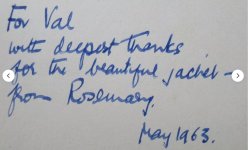 For Val
with deepest thanks
for the beautiful jacket –
from Rosemary.
May 1963.